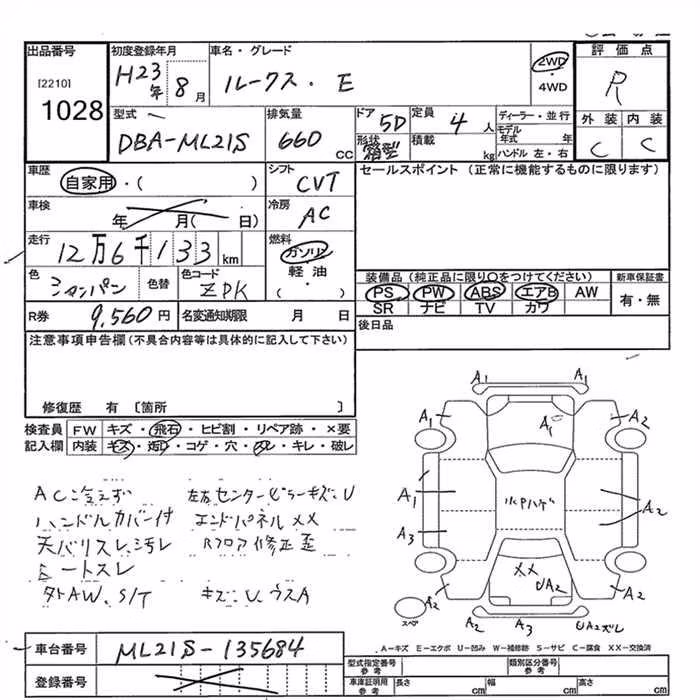 出品番号 初度登録年月 車名・グレード 2WD・4WD 評価点
[2210] 1028 H23年 8月 ルークス・E R
型式 排気量 ドア 定員 ディーラー・並行 外装 内装
DBA-ML21S 660 CC 5D 4人 モデル年式 年 C C
形状 箱型 積載 kg ハンドル 左・右
車歴 シフト セールスポイント (正常に機能するものに限ります)
自家用・( ) CVT
車検 年 月( 日) 冷房 AC
走行 12万6千133 km 燃料 ガソリン
軽油
( )
色 シャンパン 色替 色コード ZPK
装備品 (純正品に限り○をつけてください) 新車保証書
PS PW ABS エアB AW 有・無
SR ナビ TV カワ
R券 9,560円 名変通知期限 月 日 後日品
注意事項申告欄 (不具合内容等は具体的に記入して下さい)
修復歴 有 〔箇所 〕
検査員 FW キズ・飛石・ヒビ割・リペア跡・×要
記入欄 内装 キズ・汚レ・コゲ・穴・スレ・キレ・破レ
AC冷えず 左右センターピラーキズ:U
ハンドルカバー付 エンドパネルXX
天バリスレ、汚レ Rフロア修正歪
シートスレ
外AW、S/T キズ:U ウスA
A1 A1
A1 A1 A2
A1 ルーフハゲ A2
A3
XX UA2
A2 A2
スペア A2 A3 UA2ズレ
A-キズ E-エクボ U-凹み W-補修跡 S-サビ C-腐食 XX-交換済
車台番号 ML21S-135684
登録番号
型式指定番号 参考 類別区分番号 参考
車庫証明用 参考 長さ cm 幅 cm 高さ cm